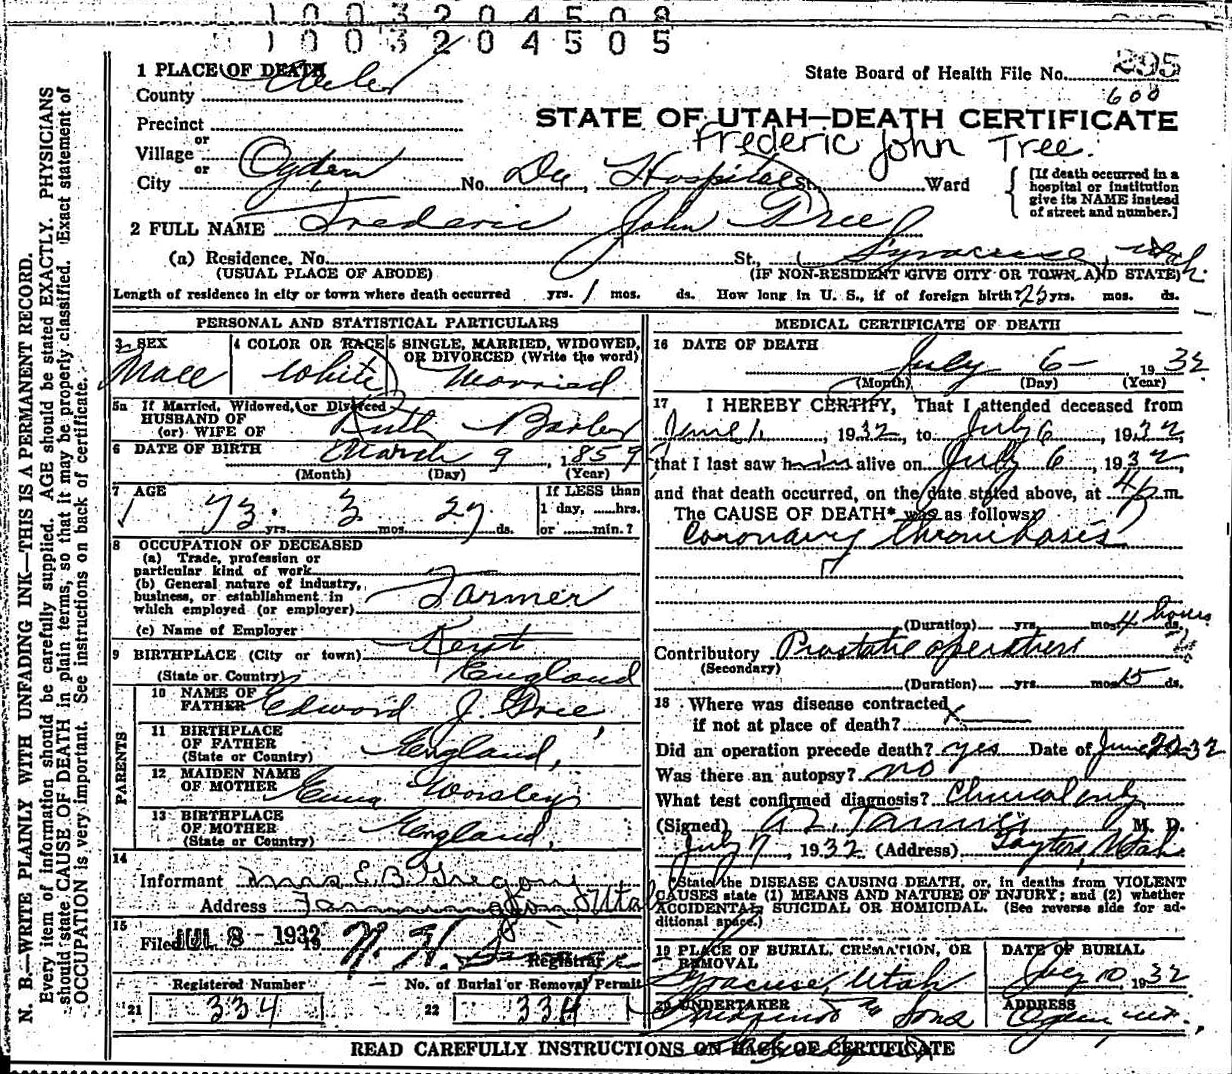 1003204508
1003204505
1 PLACE OF DEATH
State Board of Health File No. 295
County Weber
600
STATE OF UTAH—DEATH CERTIFICATE
Precinct
Frederic John Tree.
or
Village
or
City Ogden No. Dee Hospital St. Ward
[If death occurred in a
hospital or institution
give its NAME instead
of street and number.]
2 FULL NAME Frederic John Tree
(a) Residence. No. St., Syracuse, Utah
(USUAL PLACE OF ABODE) (IF NON-RESIDENT GIVE CITY OR TOWN AND STATE)
Length of residence in city or town where death occurred yrs. 1 mos. ds. How long in U. S., if of foreign birth? yrs. mos. ds.
PERSONAL AND STATISTICAL PARTICULARS
3 SEX 4 COLOR OR RACE 5 SINGLE, MARRIED, WIDOWED,
OR DIVORCED (Write the word)
Male White Married
5a If Married, Widowed, or Divorced
HUSBAND OF
(or) WIFE OF Ruth Barber
6 DATE OF BIRTH March 9, 1859
(Month) (Day) (Year)
7 AGE If LESS than
1 day, hrs.
73 yrs. 3 mos. 27 ds. or min.?
8 OCCUPATION OF DECEASED
(a) Trade, profession or
particular kind of work
(b) General nature of industry,
business, or establishment in
which employed (or employer) Farmer
(c) Name of Employer
9 BIRTHPLACE (City or town) Kent
(State or Country) England
PARENTS
10 NAME OF
FATHER Edward J. Tree
11 BIRTHPLACE
OF FATHER England,
(State or Country)
12 MAIDEN NAME
OF MOTHER Worsley
13 BIRTHPLACE
OF MOTHER England,
(State or Country)
14
Informant Mrs E. B. Gregory
Address Farmington, Utah
15
Filed JUL 8 - 1932 N. H.
Registrar
Registered Number No. of Burial or Removal Permit
21 334 22 334
MEDICAL CERTIFICATE OF DEATH
16 DATE OF DEATH
July 6 - 1932
(Month) (Day) (Year)
17 I HEREBY CERTIFY, That I attended deceased from
June 1, 1932, to July 6, 1932,
that I last saw him alive on July 6, 1932
and that death occurred, on the date stated above, at 4 p m.
The CAUSE OF DEATH* was as follows:
Coronary thrombosis
(Duration) yrs. mos. 4 hours ds.
Contributory Prostatic operation
(Secondary)
(Duration) yrs. mos. 15 ds.
18 Where was disease contracted
if not at place of death? x
Did an operation precede death? yes Date of June 20-32
Was there an autopsy? no
What test confirmed diagnosis? Clinical only
(Signed) A. Z. Tanner M. D.
July 7, 1932 (Address) Layton, Utah
*State the DISEASE CAUSING DEATH, or, in deaths from VIOLENT
CAUSES state (1) MEANS AND NATURE OF INJURY; and (2) whether
ACCIDENTAL, SUICIDAL OR HOMICIDAL. (See reverse side for ad-
ditional space.)
19 PLACE OF BURIAL, CREMATION, OR
REMOVAL
Syracuse, Utah
DATE OF BURIAL
July 10, 1932
20 UNDERTAKER
& Sons
ADDRESS
Ogden, Ut.
READ CAREFULLY INSTRUCTIONS ON BACK OF CERTIFICATE
N. B.—WRITE PLAINLY WITH UNFADING INK—THIS IS A PERMANENT RECORD.
Every item of information should be carefully supplied. AGE should be stated EXACTLY. PHYSICIANS
should state CAUSE OF DEATH in plain terms, so that it may be properly classified. Exact statement of
OCCUPATION is very important. See instructions on back of certificate.